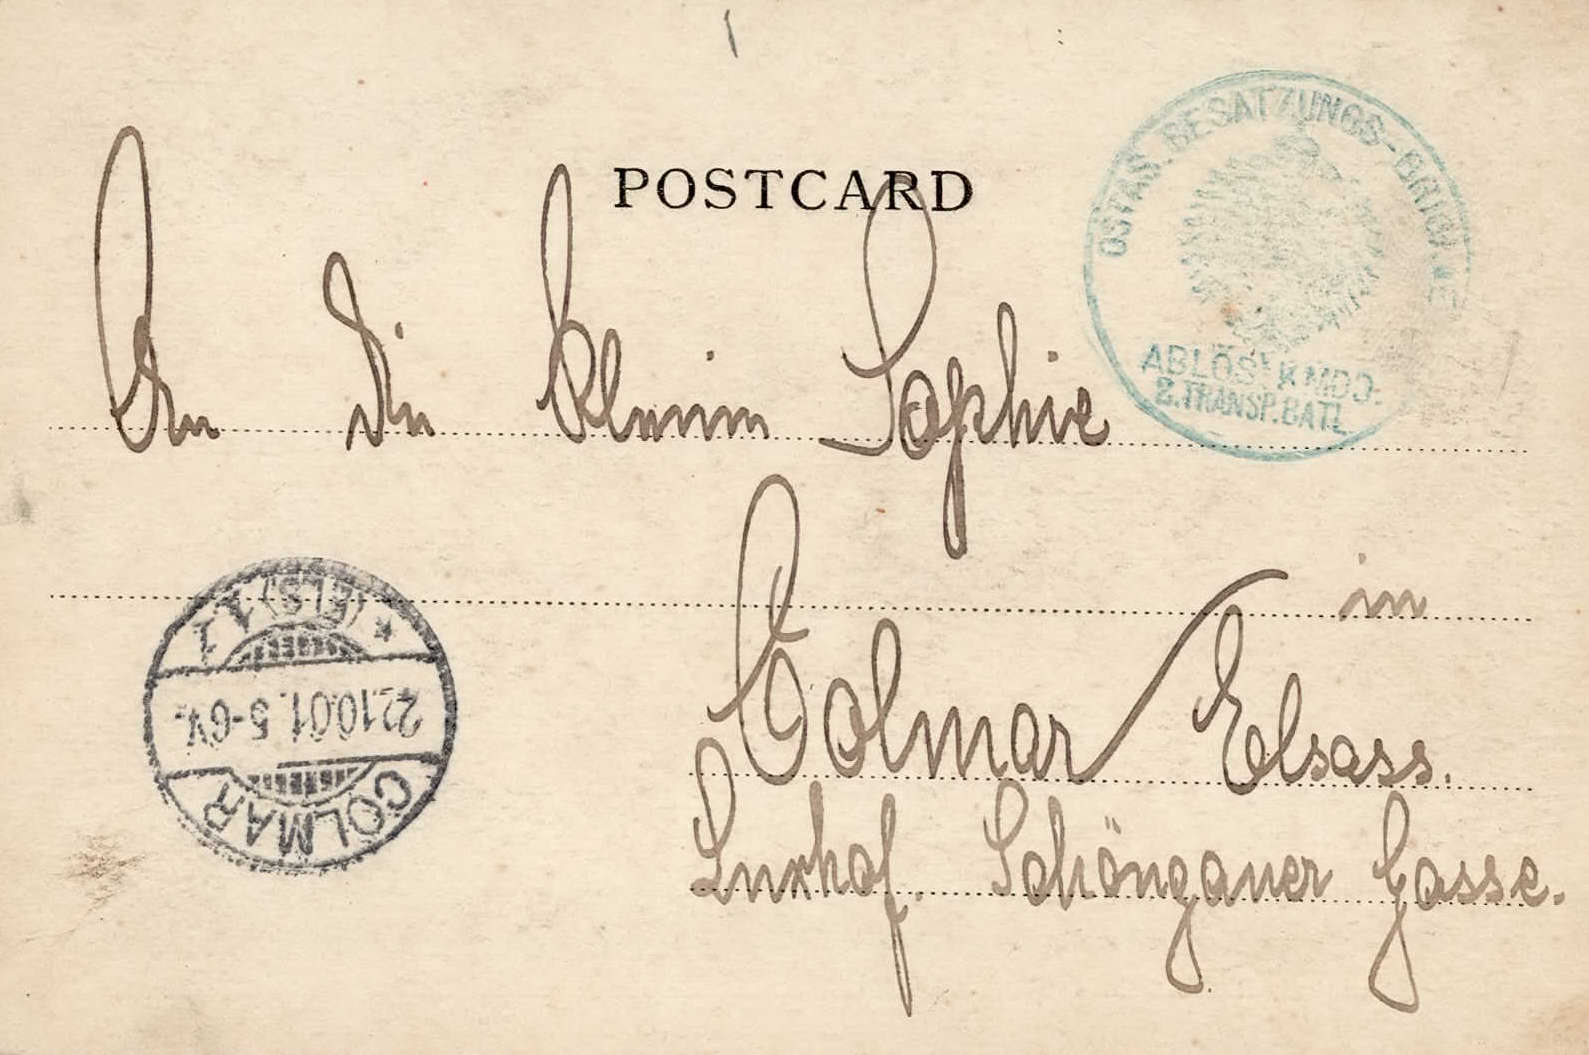 POSTCARD
OSTAS. BESATZUNGS-BRIGADE
ABLÖS. KMDO.
2. TRANSP. BATL.
An die kleine Sophie
in
Colmar Elsass.
Luxhof. Schöngauer Gasse.
COLMAR
22.10.01. 5-6V.
(ELS) 1 *